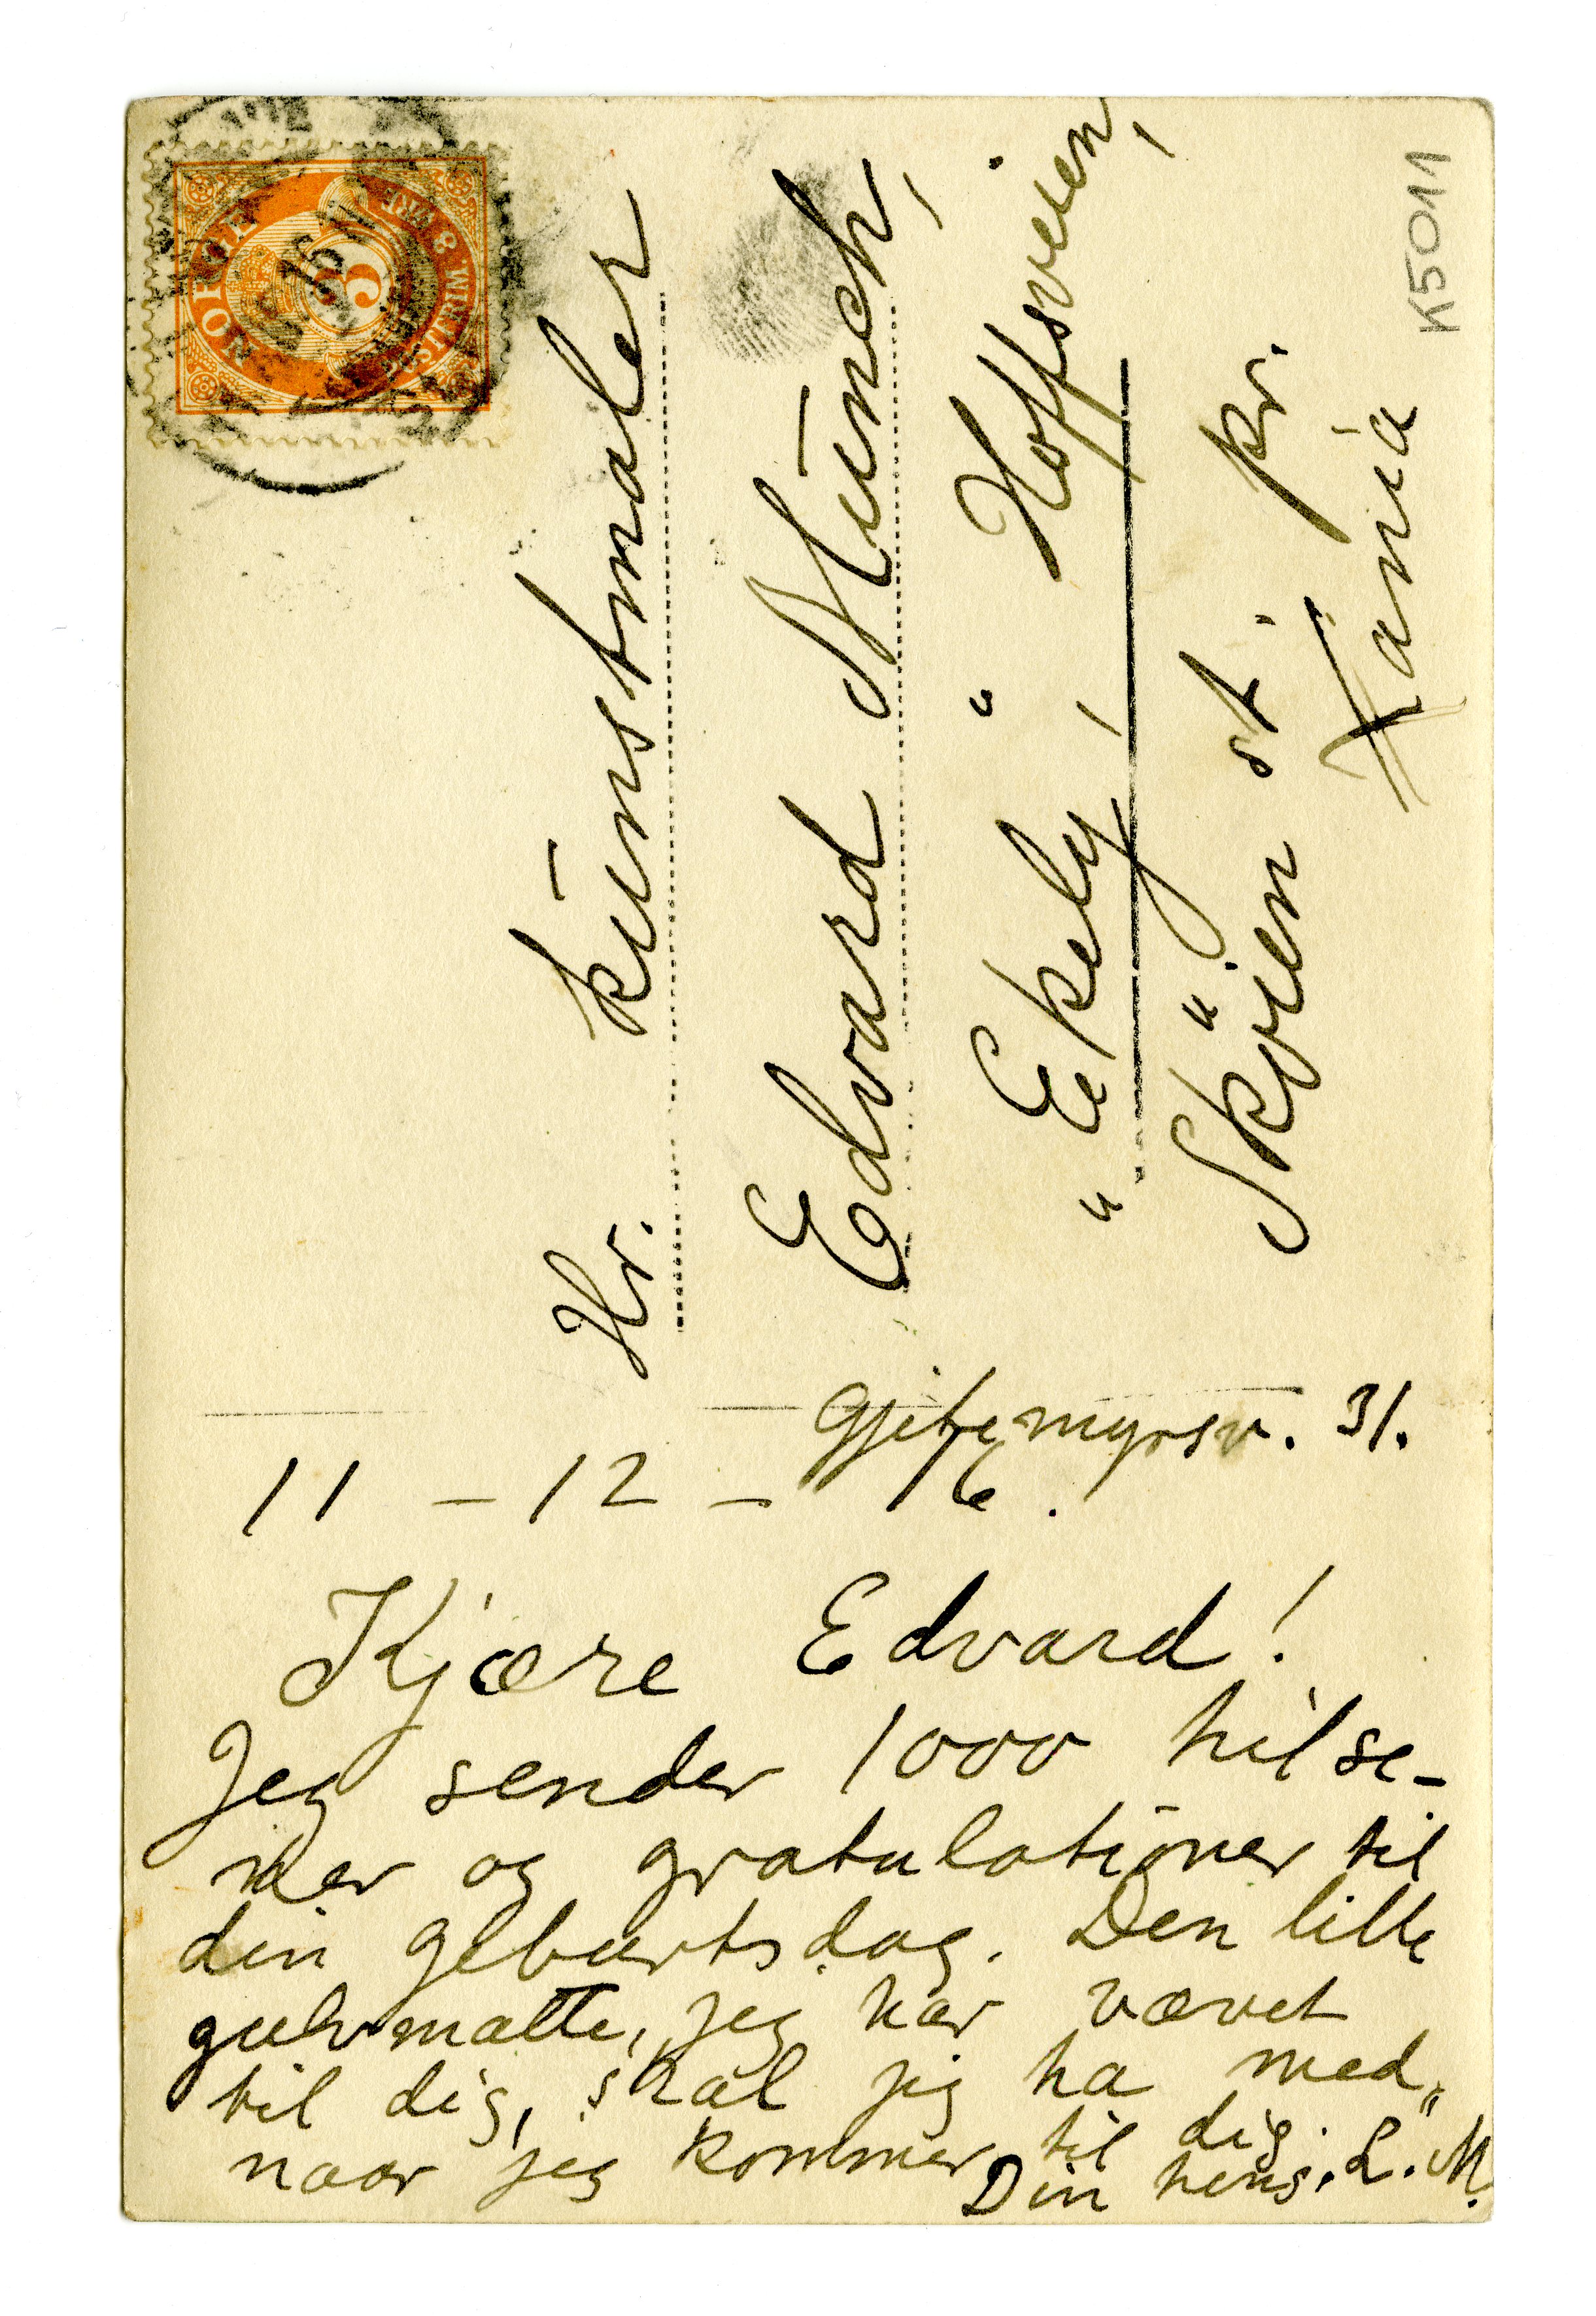 NORGE
3
POSTFRIM. 3 TRE ØRE
Hr. kunstmaler
Edvard Munch,
"Ekely," Hoffsveien,
Skøien st. pr.
Xania
K5011
Gjetemyrsv. 31.
11 – 12 – 16.
Kjære Edvard!
Jeg sender 1000 hilse-
ner og gratulationer til
din geburtsdag. Den lille
gulvmatte, jeg har vævet
til dig, skal jeg ha med,
naar jeg kommer til dig.
Din heng. "L. M.